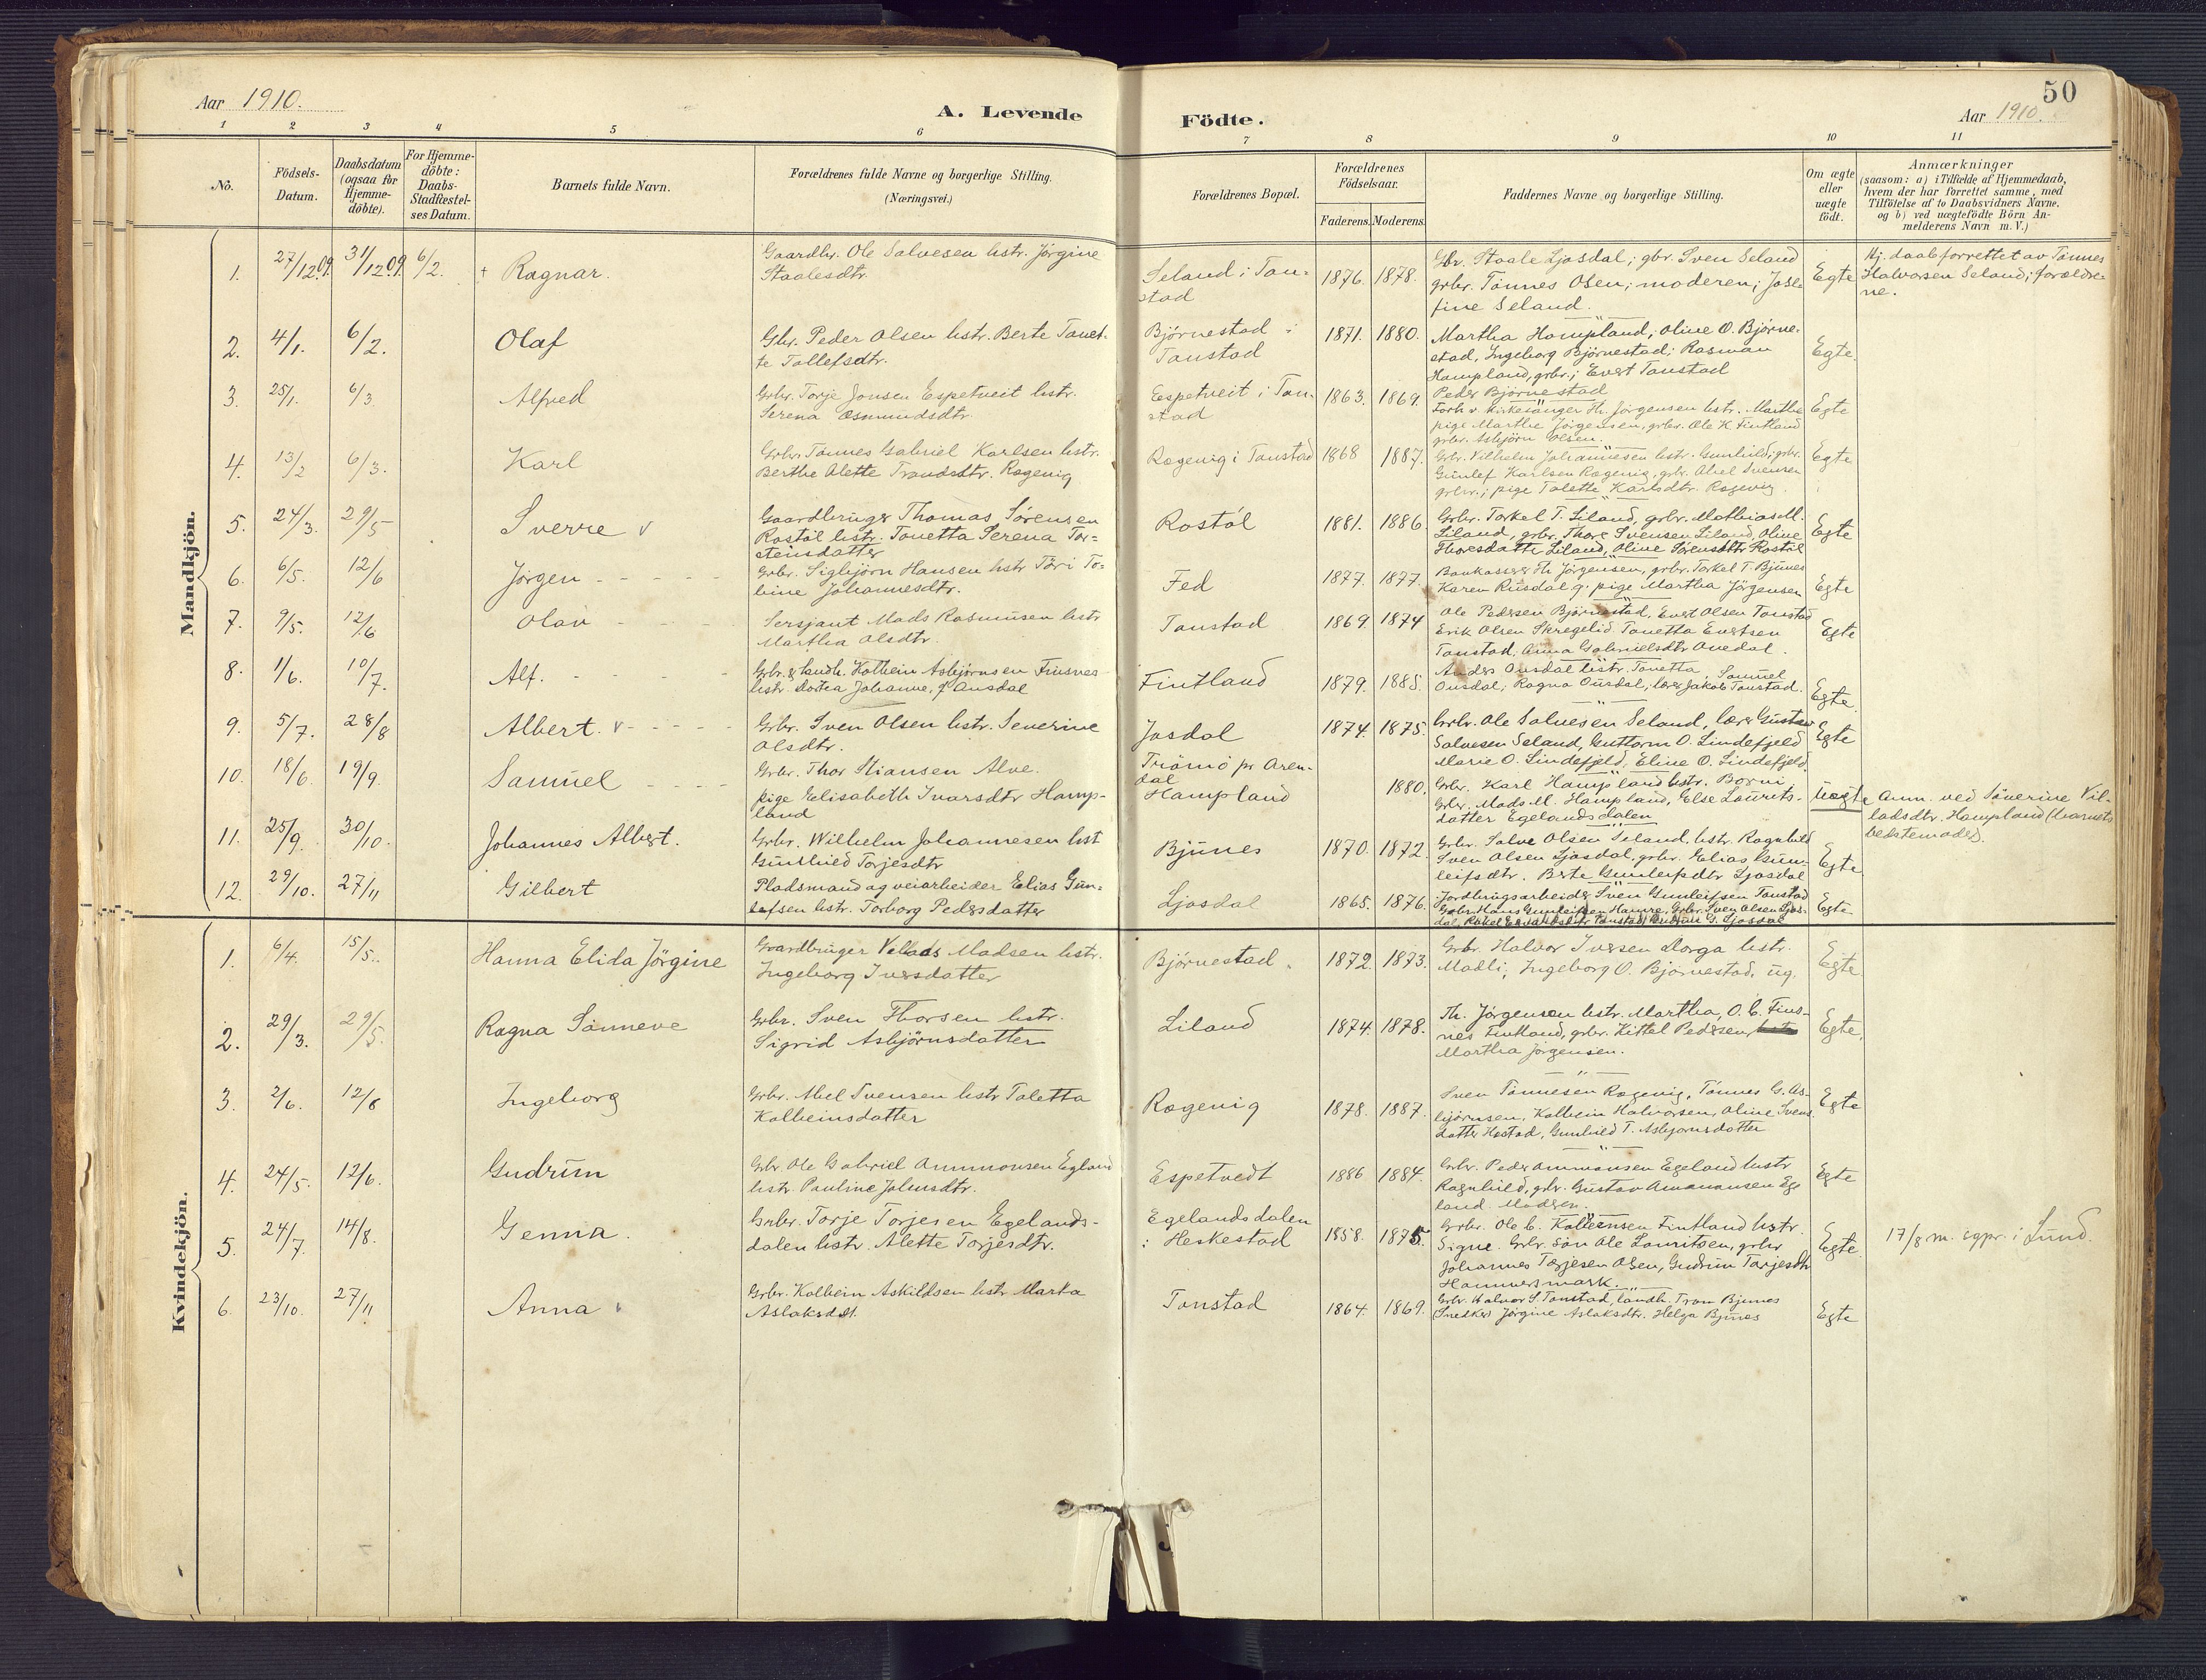 Aar 1910.
A. Levende
Födte.
50
Aar 1910.
1 2 3 4 5 6 7 8 9 10 11
No.
Födsels-
Datum.
Daabsdatum
(ogsaa for
Hjemme-
döbte).
For Hjemme-
döbte:
Daabs-
Stadfæstel-
ses Datum.
Barnets fulde Navn.
Forældrenes fulde Navne og borgerlige Stilling.
(Næringsvei.)
Forældrenes Bopæl.
Forældrenes
Födselsaar.
Faderens. Moderens.
Faddernes Navne og borgerlige Stilling.
Om ægte
eller
uægte
födt.
Anmærkninger
(saasom: a) i Tilfælde af Hjemmedaab,
hvem der har forrettet samme, med
Tilföielse af to Daabsvidners Navne,
og b) ved uægtefödte Börn An-
melderens Navn m. V.)
Mandkjön.
1. 27/12.09. 31/12.09. 6/2. † Ragnar.
Gaardbr. Ole Salvesen hstr. Jörgine
Staalesdtr.
Seland i Ton-
stad
1876. 1878.
Gbr. Staale Ljosdal; gbr. Sven Seland
grbr. Tönnes Olsen; moderen; Jose-
fine Seland.
Egte
Hj. daab forrettet av Tönnes
Halvorsen Seland; foreldre-
ne.
2. 4/1. 6/2. Olaf
Gbr. Peder Olsen hstr. Berte Tonet-
te Tollefsdtr.
Björnestad i
Tonstad
1871. 1880.
Martha Hompland; Oline O. Björne-
stad, Ingeborg Björnestad; Rasman
Hompland, grbr.; Evert Tonstad
Peder Björnestad
Egte.
3. 25/1. 6/3. Alfred
Grbr. Torje Jonsen Espetveit hstr.
Serena Osmundsdtr.
Eespetveit i Ton-
stad
1863. 1869.
Forh. v. Kirkesanger Th. Jörgensen hstr. Marthe
pige Marthe Jörgensen, grbr. Ole K. Fintland
grbr. Asbjörn Olsen.
Egte
4. 13/2 6/3. Karl
Grbr. Tönnes Gabriel Karlsen hstr.
Berthe Alette Trondsdtr. Rægevig
Rægevig i Tonstad
1868 1887.
Grbr. Vilhelm Johannesen hstr. Gunhild; grbr.
Gunlef Karlsen Rægevig, grbr. Abel Svensen
grbr.; pige Talette Karlsdtr. Rægevig
Egte
5. 24/3. 29/5 Sverre v
Gaardbruger Thomas Sörensen
Rostöl hstr. Tonetta Serena Tor-
steinsdatter
Rostöl
1881. 1886
Grbr. Torkel T. Liland, grbr. Mathias M.
Liland, grbr. Thore Svensen Liland, Oline
Thoresdatte Liland, Oline Sörensdtr Rostöl
Egte
6. 6/5. 12/6 Jörgen
Grbr. Sigbjörn Hansen hstr Töri To-
bine Johannesdtr.
Fed
1877. 1877.
Bankkasserer Th Jörgensen, grbr. Torkel T. Bjunes
Karen Rüsdal g. pige Martha Jörgensen
Egte
7. 9/5. 12/6 Olav
Sersjant Mads Rasmusen hstr
Martha Olsdtr.
Tonstad
1869. 1874
Ole Pedersen Björnestad, Evert Olsen Tonstad
Erik Olsen Skregelid Tonetta Evertsen
Tonstad, Anna Gabrielsdtr Ovedal.
Egte
8. 1/6. 10/7. Alf.
Grbr. & landh. Kolbein Asbjörnsen Finsnes
hstr Dortea Johanne, f. Ousdal
Fintland
1879. 1885.
Anders Ousdal hstr. Tonetta, Samuel
Ousdal; Ragna Ousdal; lærer Jakob Tonstad.
Egte.
9. 5/7. 28/8 Albert. v
Grbr. Sven Olsen hstr. Severine
Olsdtr.
Josdal
1874. 1875.
Grbr. Ole Salvesen Seland, lærer Gustav
Salvesen Seland, Guttorm O. Lindefjeld
Marie O. Lindefjeld, Eline O. Lindefjeld.
Egte
10. 18/6. 19/9. Samuel
Grbr. Thor Stiansen Alve.
pige Elisabeth Ivarsdtr Homp-
land
Trömö pr Aren-
dal
Hompland
1880.
Grbr. Karl Hompland hstr. Borni
Grbr. Mads M. Hompland, Else Laurits-
datter Egelandsdalen
Uegte
Anm. ved Severine Vil-
ladsdtr. Hompland (barnets
bestemoder).
11. 25/9. 30/10. Johannes Albert.
Grbr. Wilhelm Johannesen hst
Gunhild Torjesdtr
Bjunes
1870. 1872.
Grbr. Salve Olsen Seland, hstr. Ragnhild
Sven Olsen Ljosdal, grbr. Elias Gun-
leifsdtr. Berte Gunleifsdtr Ljosdal
Egte
12. 29/10. 27/11 Gilbert
Pladsmand og veiarbeider Elias Gun-
lefsen hstr. Torborg Pedersdatter
Ljosdal
1865. 1876.
Jordbrugsarbeider Sven Gunleifsen Tonstad
Grbr Hans Gunleifsen Hanne, Grbr. Sven Olsen Ljos-
dal, Rakel Tonstad, Gudrun G. Ljosdal
Egte
Kvindekjön.
1. 6/4. 15/5. Hanna Elida Jörgine
Gaardbruger Vellads Madsen hstr.
Ingeborg Iversdatter
Björnestad.
1872. 1873.
Grbr. Halvor Iversen Dorga hstr.
Madli, Ingeborg O. Björnestad, ug.
Egte
2. 29/3. 29/5. Ragna Sönneve
Grbr. Sven Thorsen hstr.
Sigrid Asbjörnsdatter
Liland
1874. 1878.
Th. Jörgensen hstr. Martha, O. C. Fins-
nes Fintland, grbr. Kittel Pedersen,
Martha Jörgensen.
Egte.
3. 2/6. 12/6 Ingeborg
Grbr. Abel Svensen hstr Taletta
Kolbeinsdatter
Rægevig
1878. 1887.
Sven Tönnesen Rægevig, Tönnes G. As-
björnsen, Kolbein Halvorsen, Oline Svens-
datter Hestad, Gunhild T. Asbjornsdatter
Egte
4. 24/5. 12/6. Gudrun
Grbr. Ole Gabriel Ammonsen Egland
hstr. Pauline Johnsdtr.
Espetvedt
1886 1884.
Grbr. Peder Ammonsen Egeland hustr
Ragnhild, grbr. Gustav Ammonsen Ege
land. Modren.
Egte
5. 24/7. 14/8. Genna.
Grbr. Torje Torjesen Egelands-
dalen hstr. Alette Torjesdtr.
Egelandsdalen
i Heskestad
1858. 1875.
Grbr. Ole C. Kolbensen Fintland hstr
Signe. Grbr. sön Ole Lauritsen, grbr
Johannes Torjesen Olsen, Gudrun Torjesdtr
Hammersmark.
Egte.
17/8 m. sgpr. i Lund.
6. 23/10. 27/11 Anna v
Grbr. Kolbein Askildsen hstr Marta
Aslaksdtt.
Tonstad
1864. 1869.
Grbr. Halvor S. Tonstad, landh. Tron Bjunes
Snedker Jörgine Aslaksdtr. Helga Bjunes
Egte